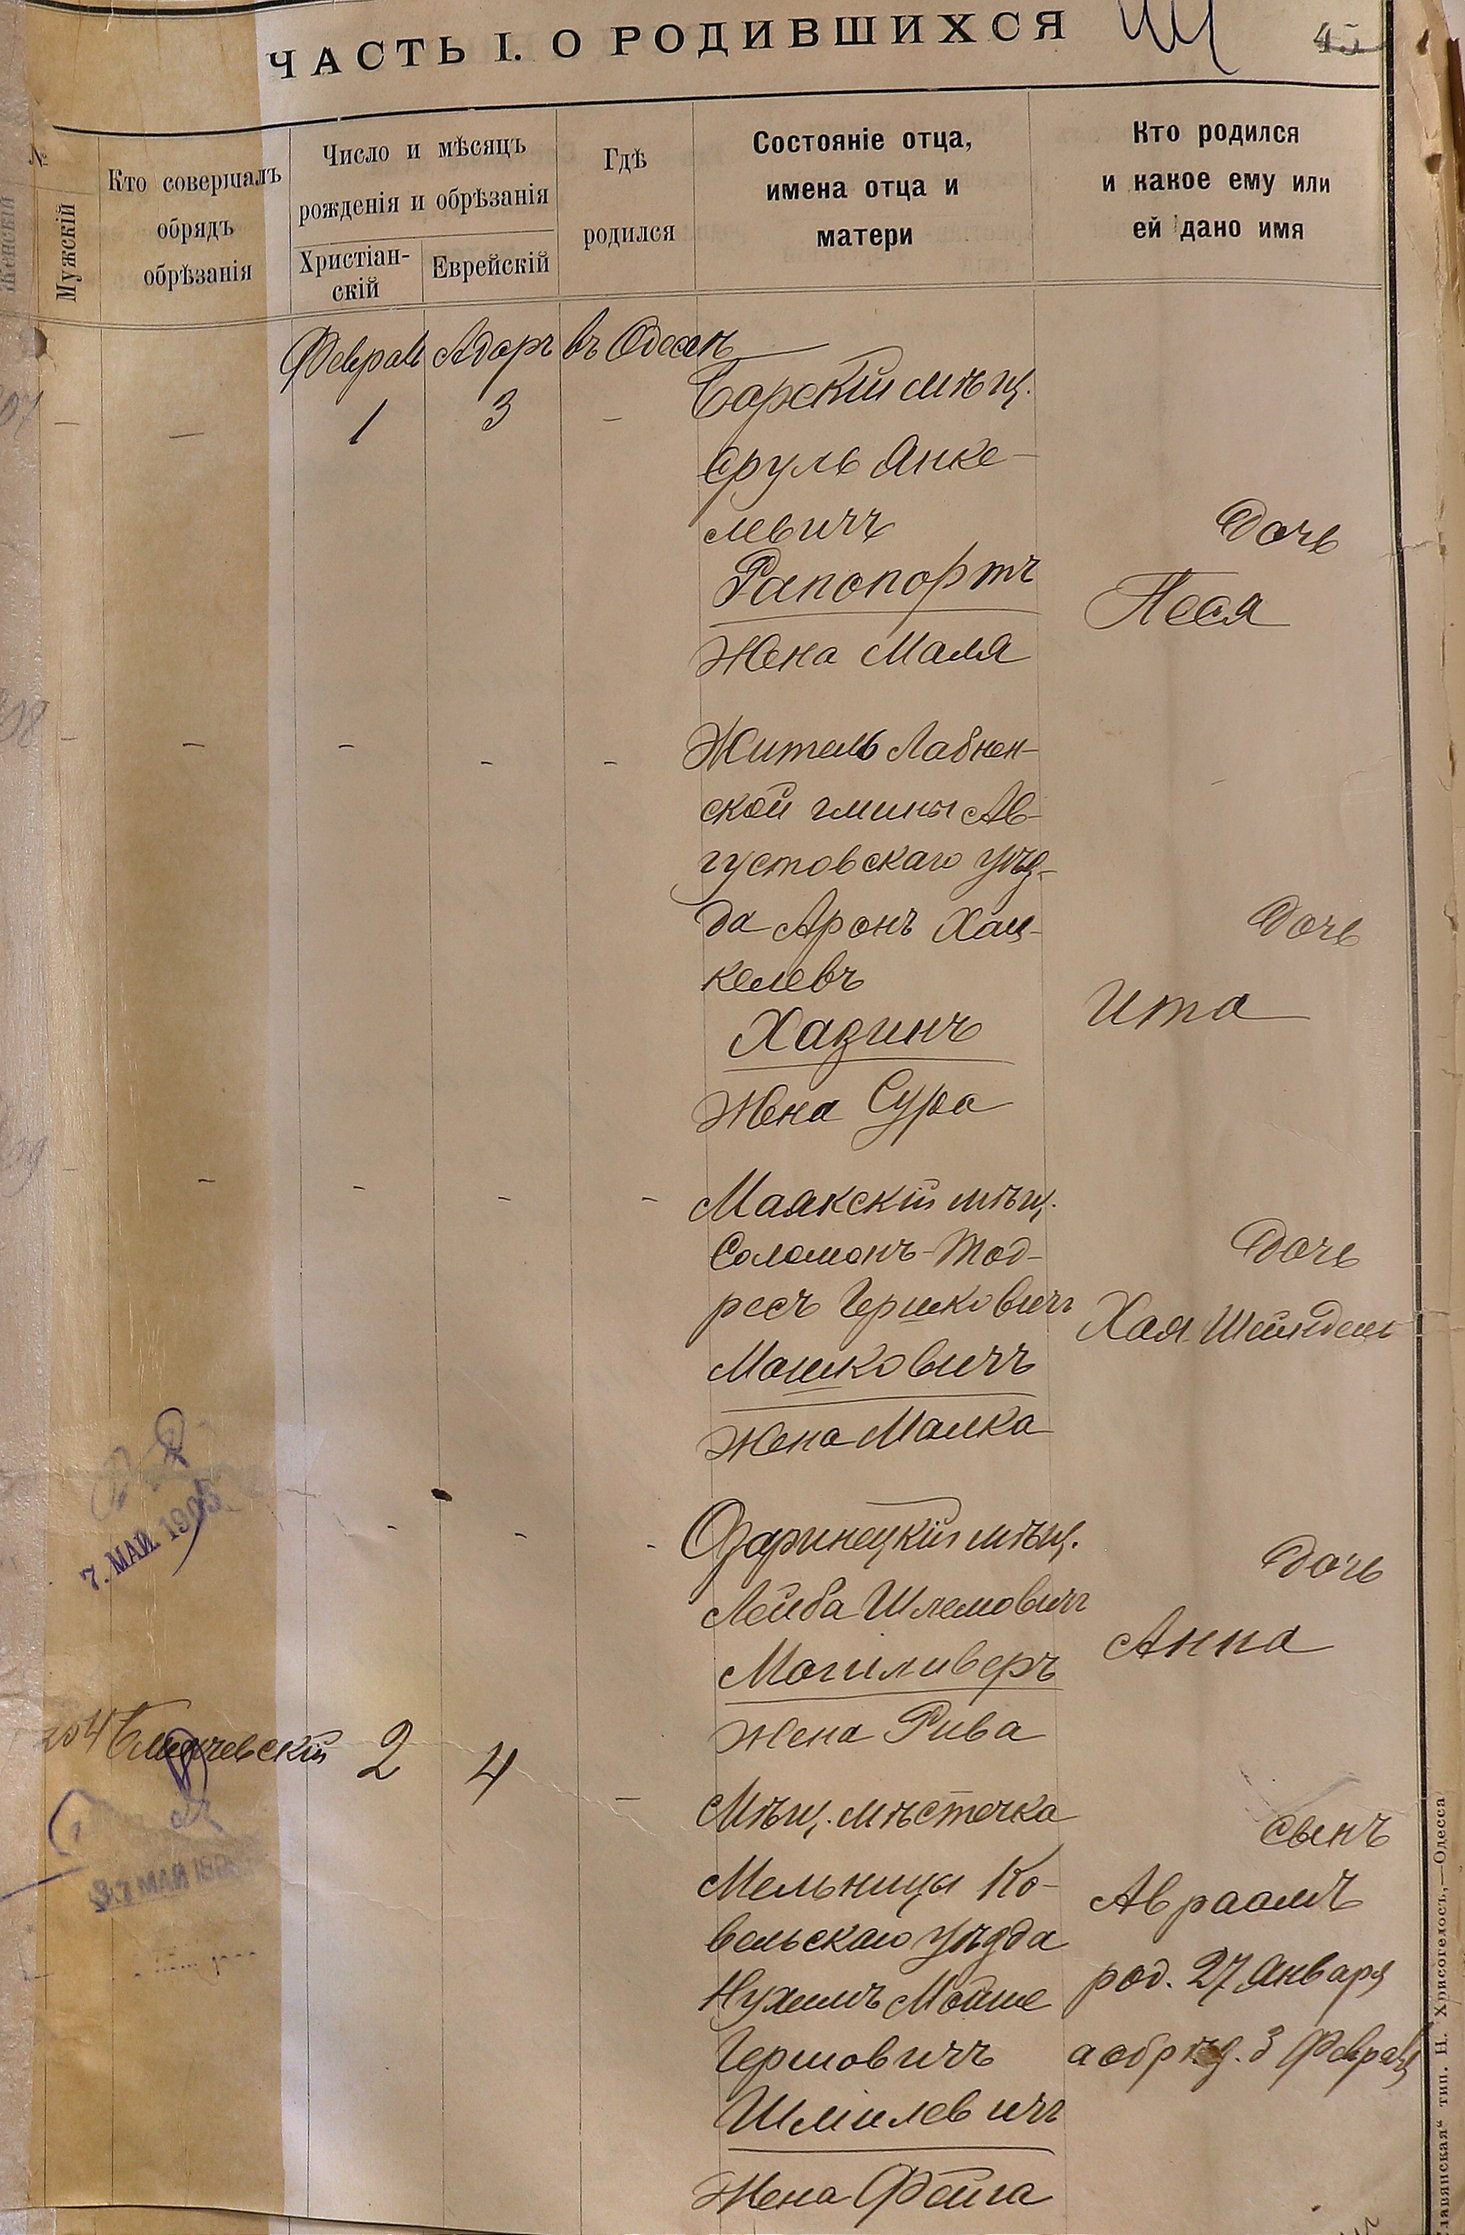 ЧАСТЬ I. О РОДИВШИХСЯ
45
№
Женскій
Мужскій
Кто совершалъ
обрядъ
обрѣзанія
Число и мѣсяцъ
рожденія и обрѣзанія
Христіан-
скій
Еврейскій
Гдѣ
родился
Состояніе отца,
имена отца и
матери
Кто родился
и какое ему или
ей дано имя
Февраль Адаръ въ Одессѣ
1 3
Барскій мѣщ.
Сруль Янке-
левичъ
Рапопортъ
Жена Маля
Дочь
Песя
Житель Лабнен-
ской гмины Ав-
густовскаго уѣз-
да Аронъ Хац-
келевъ
Хазинъ
Жена Сура
Дочь
Ита
Маякскій мѣщ.
Соломонъ-Тод-
ресъ Гершковичъ
Мошковичъ
Жена Малка
Дочь
Хая Шейндель
7. МАЙ 1905
Озаринецкій мѣщ.
Лейба Шлемовичъ
Могиливеръ
Жена Рива
Дочь
Анна
204
2 4
Мѣщ. мѣстечка
Мельницы Ко-
вельскаго уѣзда
Нухимъ Мойше
Гершовичъ
Шмилевичъ
Жена Фейга
сынъ
Авраамъ
род. 27 Января
а обрѣз. 3 Февраля
МАЙ
тип. Н. Хрисогелосъ,—Одесса